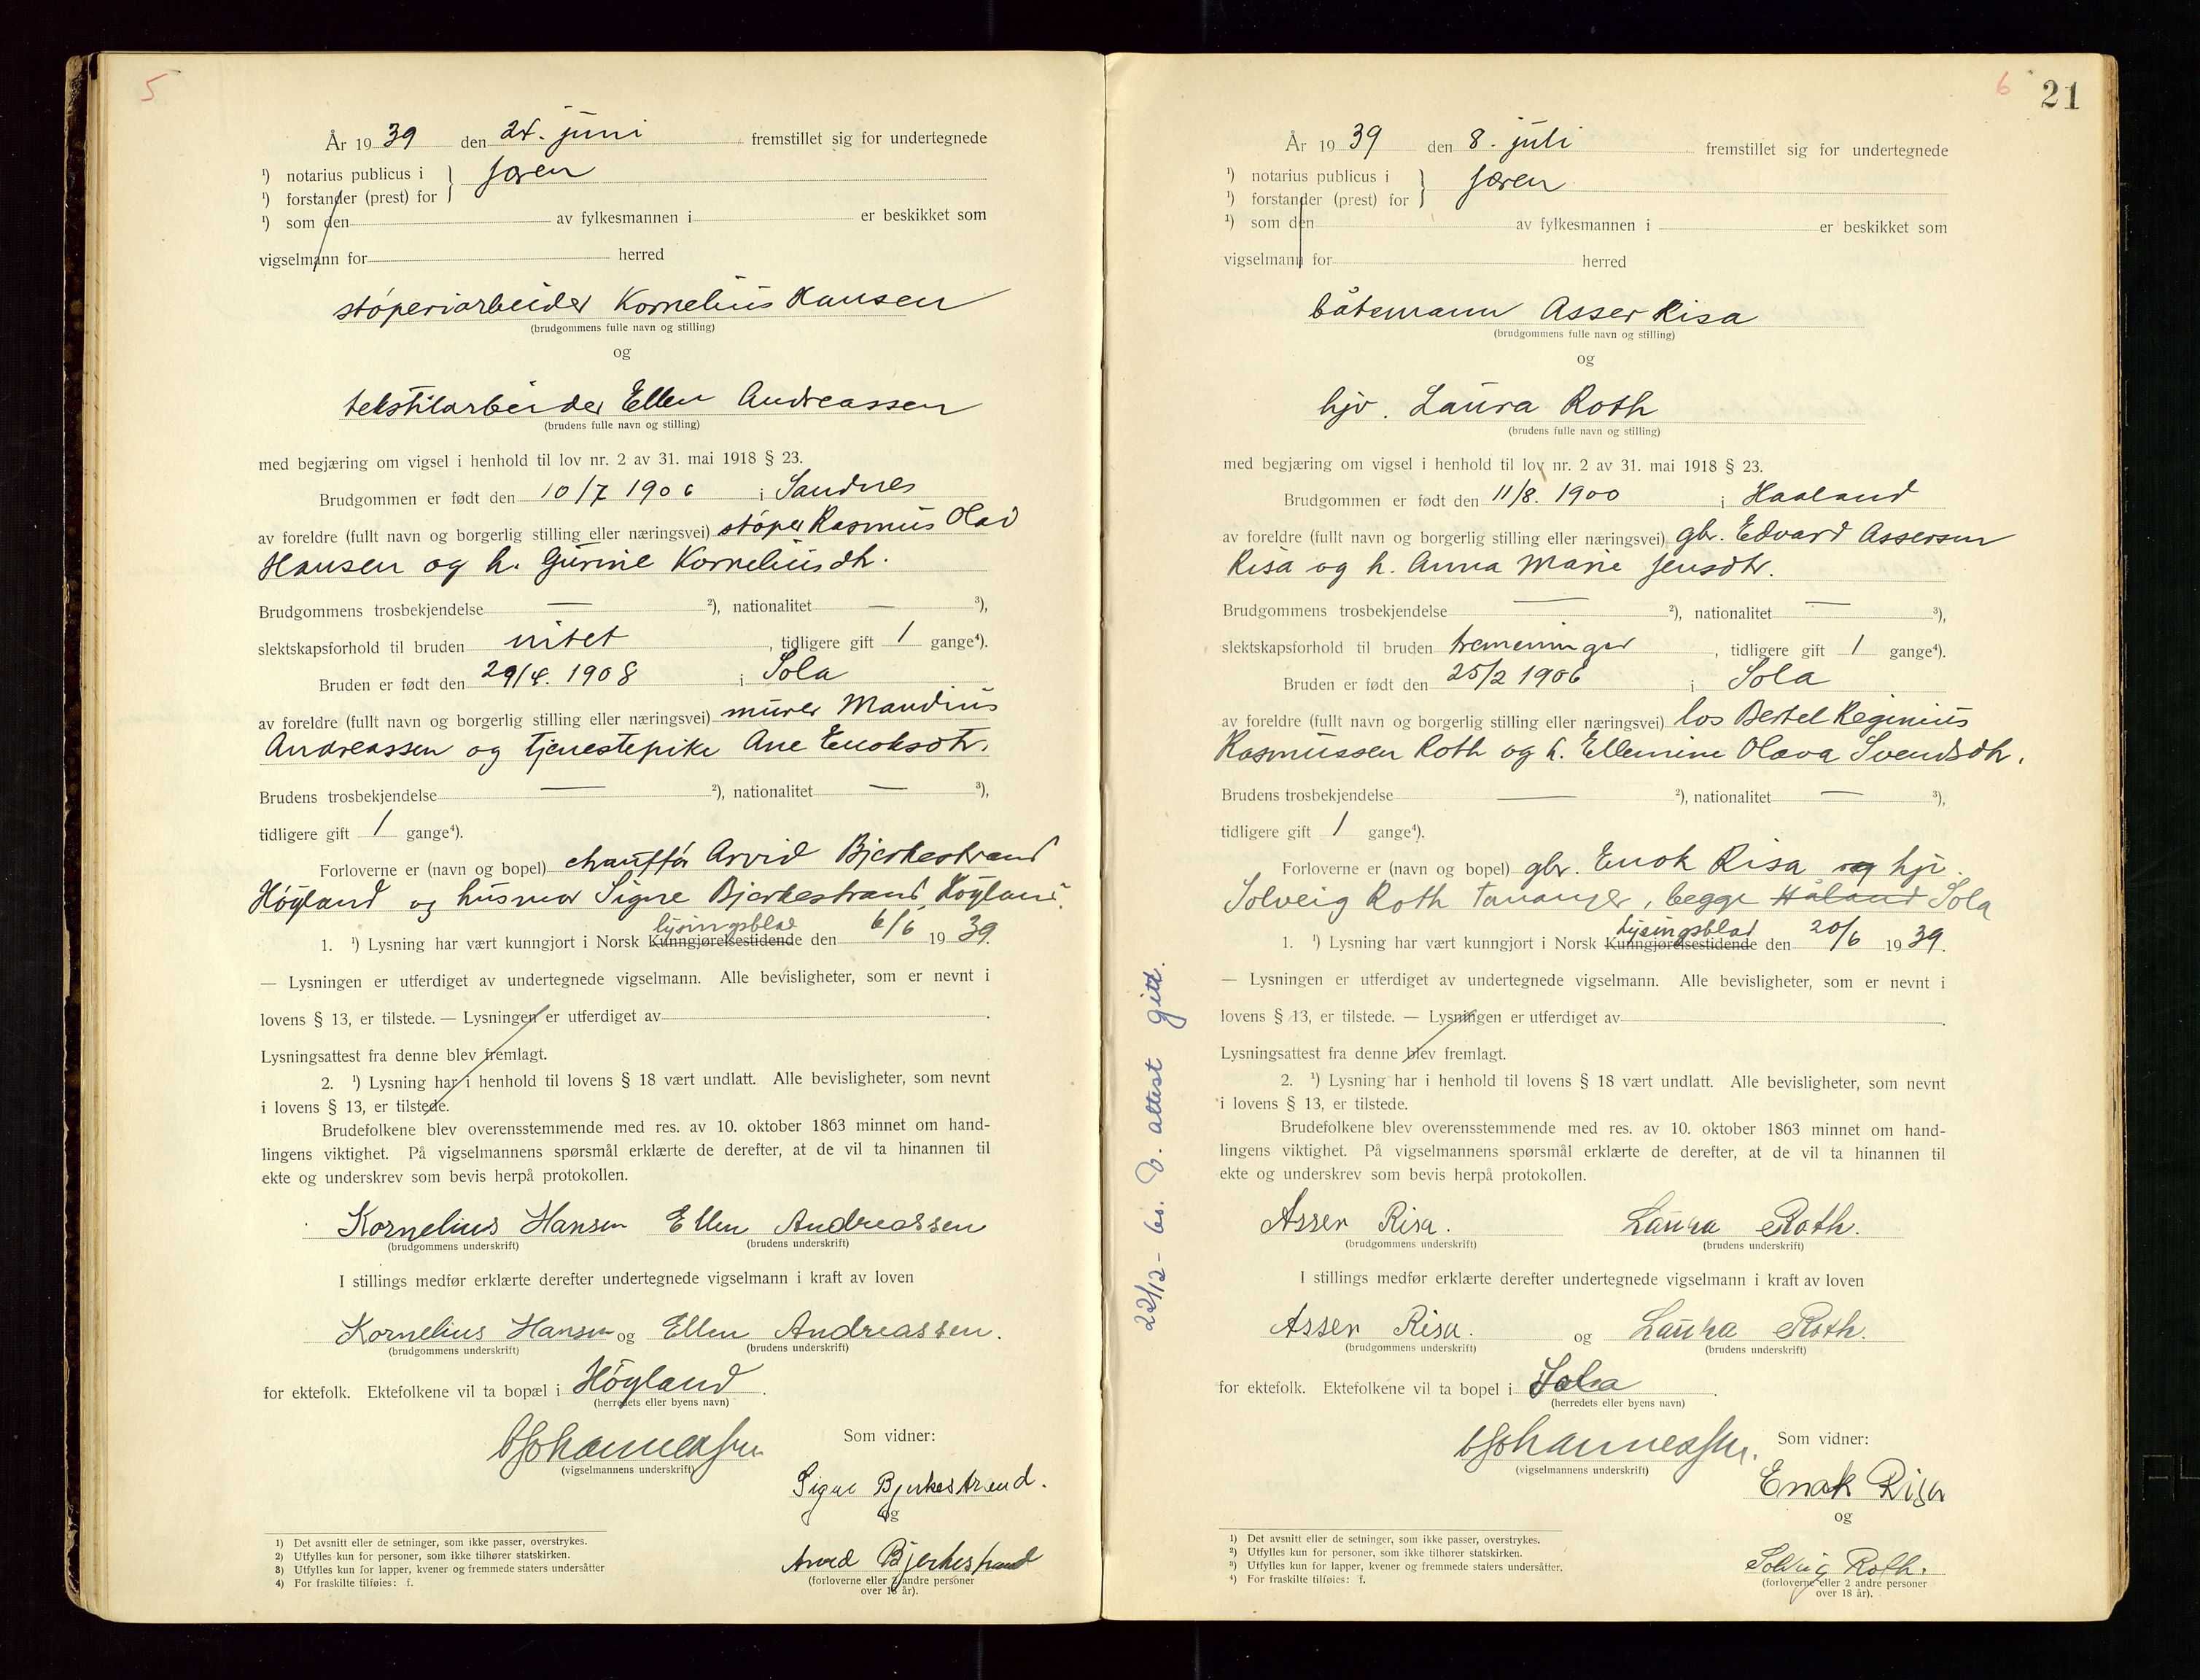 5
År 1939 den 24. juni fremstillet sig for undertegnede
¹) notarius publicus i } Jæren
¹) forstander (prest) for
¹) som den av fylkesmannen i er beskikket som
vigselmann for herred
støperiarbeider Kornelius Hansen
(brudgommens fulle navn og stilling)
og
tekstilarbeider Ellen Andreassen
(brudens fulle navn og stilling)
med begjæring om vigsel i henhold til lov nr. 2 av 31. mai 1918 § 23.
Brudgommen er født den 10/7 1906 i Sandnes
av foreldre (fullt navn og borgerlig stilling eller næringsvei) støper Rasmus Olai
Hansen og h. Gurine Korneliusdtr.
Brudgommens trosbekjendelse — ²), nationalitet — ³),
slektskapsforhold til bruden intet, tidligere gift 1 gange⁴).
Bruden er født den 29/4. 1908 i Sola
av foreldre (fullt navn og borgerlig stilling eller næringsvei) murer Mandius
Andreassen og tjenestepike Ane Enoksdtr.
Brudens trosbekjendelse — ²), nationalitet — ³),
tidligere gift 1 gange⁴).
Forloverne er (navn og bopel) chauffør Arvid Bjerkestrand
Høyland og husmor Signe Bjerkestrand, Høyland.
lysingsblad
1. ¹) Lysning har vært kunngjort i Norsk Kunngjørelsestidende den 6/6 1939.
— Lysningen er utferdiget av undertegnede vigselmann. Alle bevisligheter, som er nevnt i
lovens § 13, er tilstede. — Lysningen er utferdiget av
Lysningsattest fra denne blev fremlagt.
2. ¹) Lysning har i henhold til lovens § 18 vært undlatt. Alle bevisligheter, som nevnt
i lovens § 13, er tilstede.
Brudefolkene blev overensstemmende med res. av 10. oktober 1863 minnet om hand-
lingens viktighet. På vigselmannens spørsmål erklærte de derefter, at de vil ta hinannen til
ekte og underskrev som bevis herpå protokollen.
Kornelius Hansen Ellen Andreassen
(brudgommens underskrift) (brudens underskrift)
I stillings medfør erklærte derefter undertegnede vigselmann i kraft av loven
Kornelius Hansen og Ellen Andreassen.
(brudgommens underskrift) (brudens underskrift)
for ektefolk. Ektefolkene vil ta bopæl i Høyland.
(herredets eller byens navn)
Johannessen
(vigselmannens underskrift)
Som vidner:
Signe Bjerkestrand.
og
Arvid Bjerkestrand
(forloverne eller 2 andre personer
over 18 år).
1) Det avsnitt eller de setninger, som ikke passer, overstrykes.
2) Utfylles kun for personer, som ikke tilhører statskirken.
3) Utfylles kun for lapper, kvener og fremmede staters undersåtter
4) For fraskilte tilføies: f.
6 21
År 1939 den 8. juli fremstillet sig for undertegnede
¹) notarius publicus i } Jæren
¹) forstander (prest) for
¹) som den av fylkesmannen i er beskikket som
vigselmann for herred
båtsmann Asser Risa
(brudgommens fulle navn og stilling)
og
hjv. Laura Roth
(brudens fulle navn og stilling)
med begjæring om vigsel i henhold til lov nr. 2 av 31. mai 1918 § 23.
Brudgommen er født den 11/8. 1900 i Haaland
av foreldre (fullt navn og borgerlig stilling eller næringsvei) gbr. Edvard Assersen
Risa og h. Anna Marie Jensdtr.
Brudgommens trosbekjendelse — ²), nationalitet — ³),
slektskapsforhold til bruden tremeninger, tidligere gift 1 gange⁴).
Bruden er født den 25/2 1906 i Sola
av foreldre (fullt navn og borgerlig stilling eller næringsvei) los Bertel Reginius
Rasmussen Roth og h. Ellemine Olava Svendsdtr.
Brudens trosbekjendelse — ²), nationalitet — ³),
tidligere gift 1 gange⁴).
Forloverne er (navn og bopel) gbr. Enok Risa og hjv.
Solveig Roth Tananger, begge Håland Sola
lysingsblad
1. ¹) Lysning har vært kunngjort i Norsk Kunngjørelsestidende den 20/6 1939.
— Lysningen er utferdiget av undertegnede vigselmann. Alle bevisligheter, som er nevnt i
lovens § 13, er tilstede. — Lysningen er utferdiget av
Lysningsattest fra denne blev fremlagt.
2. ¹) Lysning har i henhold til lovens § 18 vært undlatt. Alle bevisligheter, som nevnt
i lovens § 13, er tilstede.
Brudefolkene blev overensstemmende med res. av 10. oktober 1863 minnet om hand-
lingens viktighet. På vigselmannens spørsmål erklærte de derefter, at de vil ta hinannen til
ekte og underskrev som bevis herpå protokollen.
Asser Risa. Laura Roth.
(brudgommens underskrift) (brudens underskrift)
I stillings medfør erklærte derefter undertegnede vigselmann i kraft av loven
Asser Risa. og Laura Roth.
(brudgommens underskrift) (brudens underskrift)
for ektefolk. Ektefolkene vil ta bopel i Sola.
(herredets eller byens navn)
Johannessen.
(vigselmannens underskrift)
Som vidner:
Enok Risa
og
Solveig Roth.
(forloverne eller 2 andre personer
over 18 år).
¹) Det avsnitt eller de setninger, som ikke passer, overstrykes.
²) Utfylles kun for personer, som ikke tilhører statskirken.
³) Utfylles kun for lapper, kvener og fremmede staters undersåtter.
⁴) For fraskilte tilføies: f.
22/12- 60. D. attest gitt.